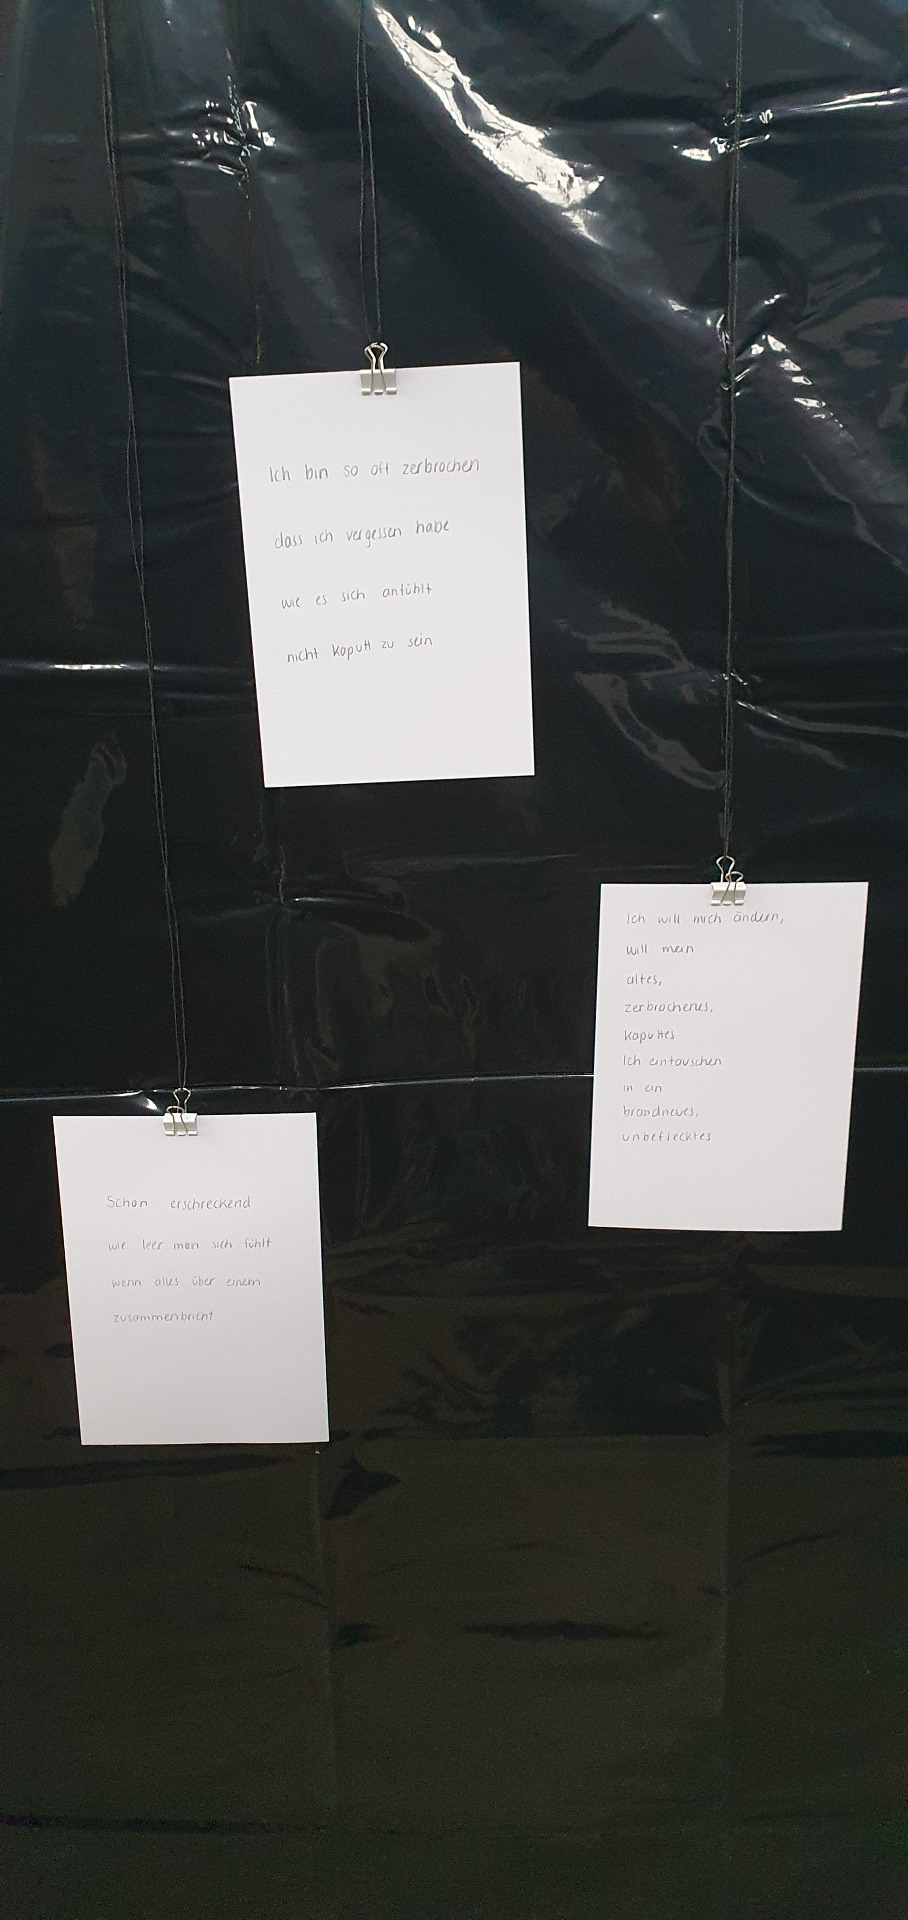 Ich bin so oft zerbrochen
dass ich vergessen habe
wie es sich anfühlt
nicht kaputt zu sein
Ich will mich ändern,
will mein
altes,
zerbrochenes,
kaputtes
Ich eintauschen
in ein
brandneues,
unbeflecktes
Schon erschreckend
wie leer man sich fühlt
wenn alles über einem
zusammenbricht